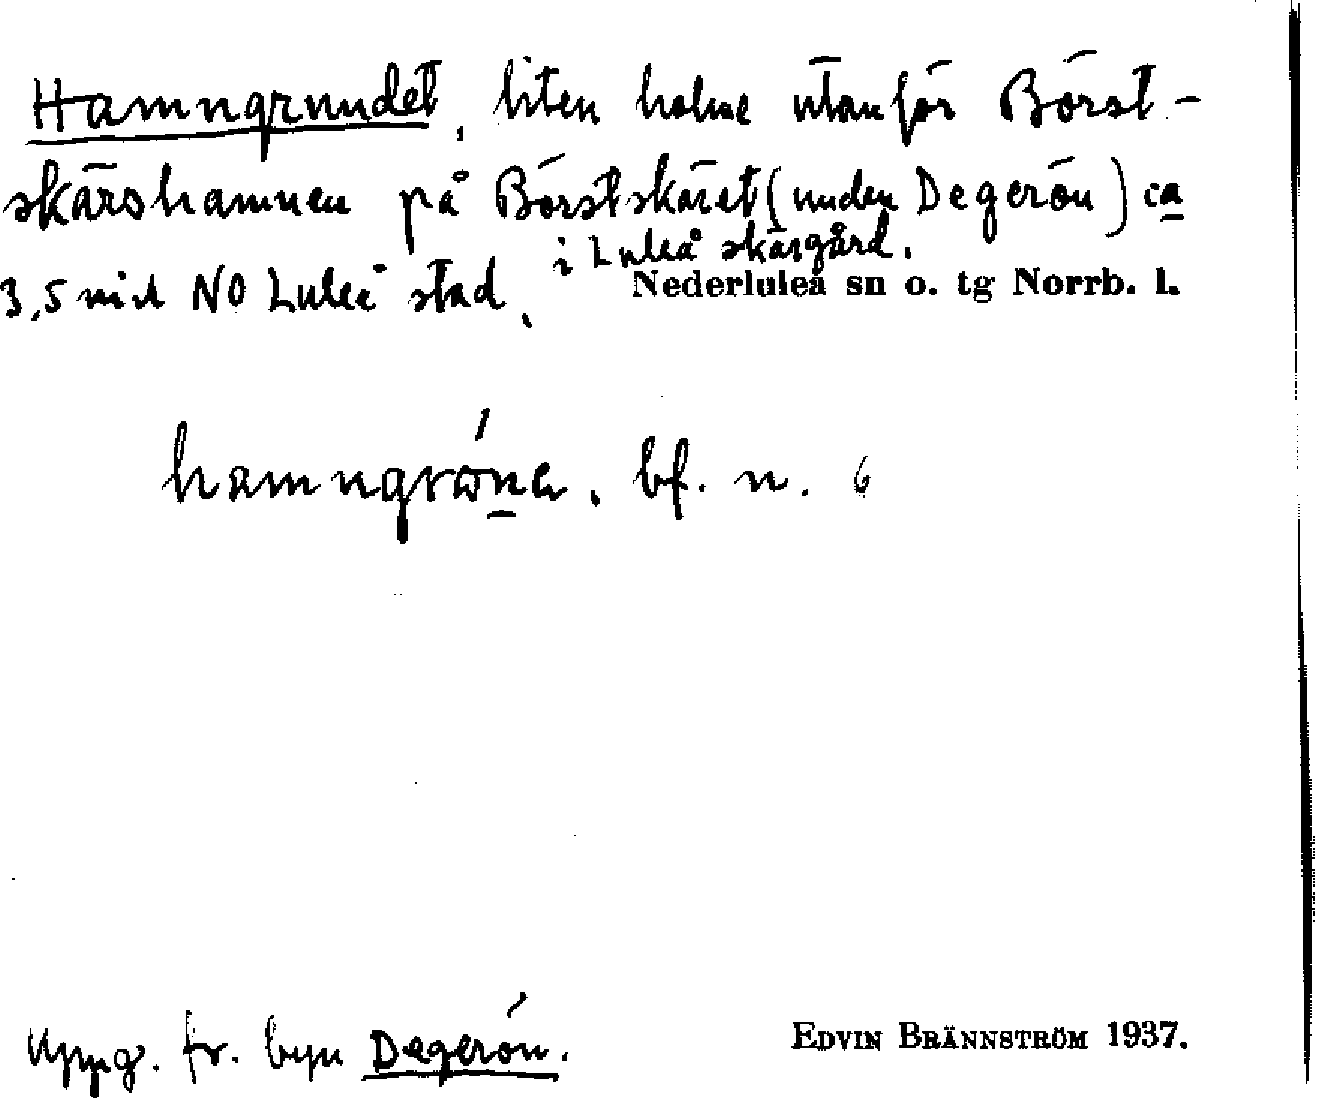 Hamngrundet, liten holme utanför Börst-
skärshamnen på Börstskäret (under Degerön) ca
3,5 mil NO Luleå stad, i Luleå skärgård.
Nederluleå sn o. tg Norrb. l.
bf. n. 6
Uppg. fr. byn Degerön.
EDVIN BRÄNNSTRÖM 1937.